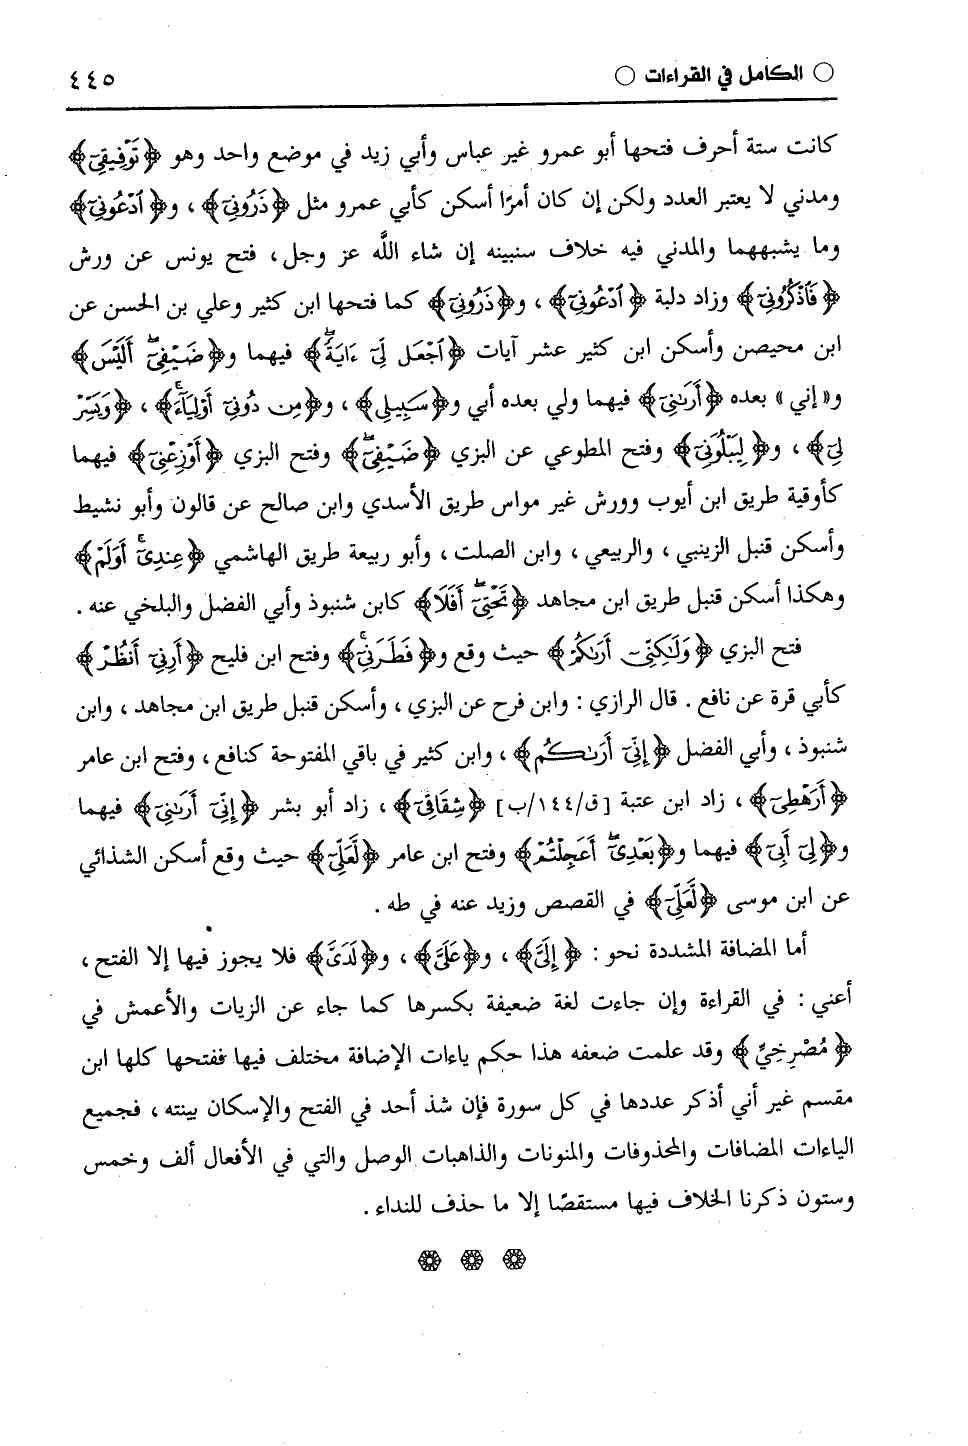 ○ الكامل في القراءات ○
٤٤٥
كانت ستة أحرف فتحها أبو عمرو غير عباس وأبي زيد في موضع واحد وهو ﴿تَوْفِيقِيٓ﴾
ومدني لا يعتبر العدد ولكن إن كان أمرًا أسكن كأبي عمرو مثل ﴿ذَرُونِيٓ﴾ ، و﴿ٱدْعُونِيٓ﴾
وما يشبههما والمدني فيه خلاف سنبينه إن شاء اللَّه عز وجل، فتح يونس عن ورش
﴿فَٱذْكُرُونِيٓ﴾ وزاد دلبة ﴿ٱدْعُونِيٓ﴾ ، و﴿ذَرُونِيٓ﴾ كما فتحها ابن كثير وعلي بن الحسن عن
ابن محيصن وأسكن ابن كثير عشر آيات ﴿ٱجْعَل لِّيٓ ءَايَةً﴾ فيهما و﴿ضَيْفِيٓ أَلَيْسَ﴾
و«إني» بعده ﴿أَرَىٰنِيٓ﴾ فيهما ولي بعده أبي و﴿سَبِيلِي﴾ ، و﴿مِن دُونِيٓ أَوْلِيَآءَ﴾ ، ﴿وَيَسِّرْ
لِيٓ﴾ ، و﴿لِيَبْلُوَنِيٓ﴾ وفتح المطوعي عن البزي ﴿ضَيْفِيٓ﴾ وفتح البزي ﴿أَوْزِعْنِيٓ﴾ فيهما
كأوقية طريق ابن أيوب وورش غير مواس طريق الأسدي وابن صالح عن قالون وأبو نشيط
وأسكن قنبل الزينبي ، والربيعي ، وابن الصلت ، وأبو ربيعة طريق الهاشمي ﴿عِندِيٓ أَوَلَمْ﴾
وهكذا أسكن قنبل طريق ابن مجاهد ﴿تَحْتِيٓ أَفَلَا﴾ كابن شنبوذ وأبي الفضل والبلخي عنه .
فتح البزي ﴿وَلَٰكِنِّيٓ أَرَىٰكُمْ﴾ حيث وقع و﴿فَطَرَنِيٓ﴾ وفتح ابن فليح ﴿أَرِنِيٓ أَنظُرْ﴾
كأبي قرة عن نافع . قال الرازي : وابن فرح عن البزي ، وأسكن قنبل طريق ابن مجاهد ، وابن
شنبوذ ، وأبي الفضل ﴿إِنِّيٓ أَرَىٰكُم﴾ ، وابن كثير في باقي المفتوحة كنافع ، وفتح ابن عامر
﴿أَرَهْطِيٓ﴾ ، زاد ابن عتبة [ق/١٤٤/ب] ﴿شِقَاقِيٓ﴾ ، زاد أبو بشر ﴿إِنِّيٓ أَرَىٰنِيٓ﴾ فيهما
و﴿لِيٓ أَبِيٓ﴾ فيهما و﴿بَعْدِيٓ أَعَجِلْتُمْ﴾ وفتح ابن عامر ﴿لَّعَلِّيٓ﴾ حيث وقع أسكن الشذائي
عن ابن موسى ﴿لَّعَلِّيٓ﴾ في القصص وزيد عنه في طه .
أما المضافة المشددة نحو : ﴿إِلَيَّ﴾ ، و﴿عَلَيَّ﴾ ، و﴿لَدَيَّ﴾ فلا يجوز فيها إلا الفتح ،
أعني : في القراءة وإن جاءت لغة ضعيفة بكسرها كما جاء عن الزيات والأعمش في
﴿مُصْرِخِيِّ﴾ وقد علمت ضعفه هذا حكم ياءات الإضافة مختلف فيها ففتحها كلها ابن
مقسم غير أني أذكر عددها في كل سورة فإن شذ أحد في الفتح والإسكان بينته ، فجميع
الياءات المضافات والمحذوفات والمنونات والذاهبات الوصل والتي في الأفعال ألف وخمس
وستون ذكرنا الخلاف فيها مستقصًا إلا ما حذف للنداء .